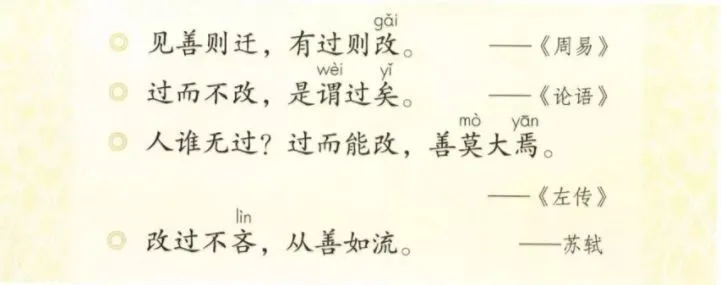 gǎi
◎ 见善则迁，有过则改。 ——《周易》
wèi yǐ
◎ 过而不改，是谓过矣。 ——《论语》
mò yān
◎ 人谁无过？过而能改，善莫大焉。
——《左传》
lìn
◎ 改过不吝，从善如流。 ——苏轼